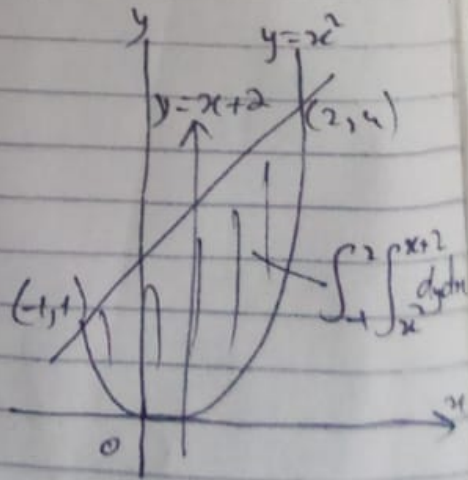 y
y=x²
y=x+2
(2,4)
(-1,1)
∫_{-1}^{2} ∫_{x²}^{x+2} dydx
x
0